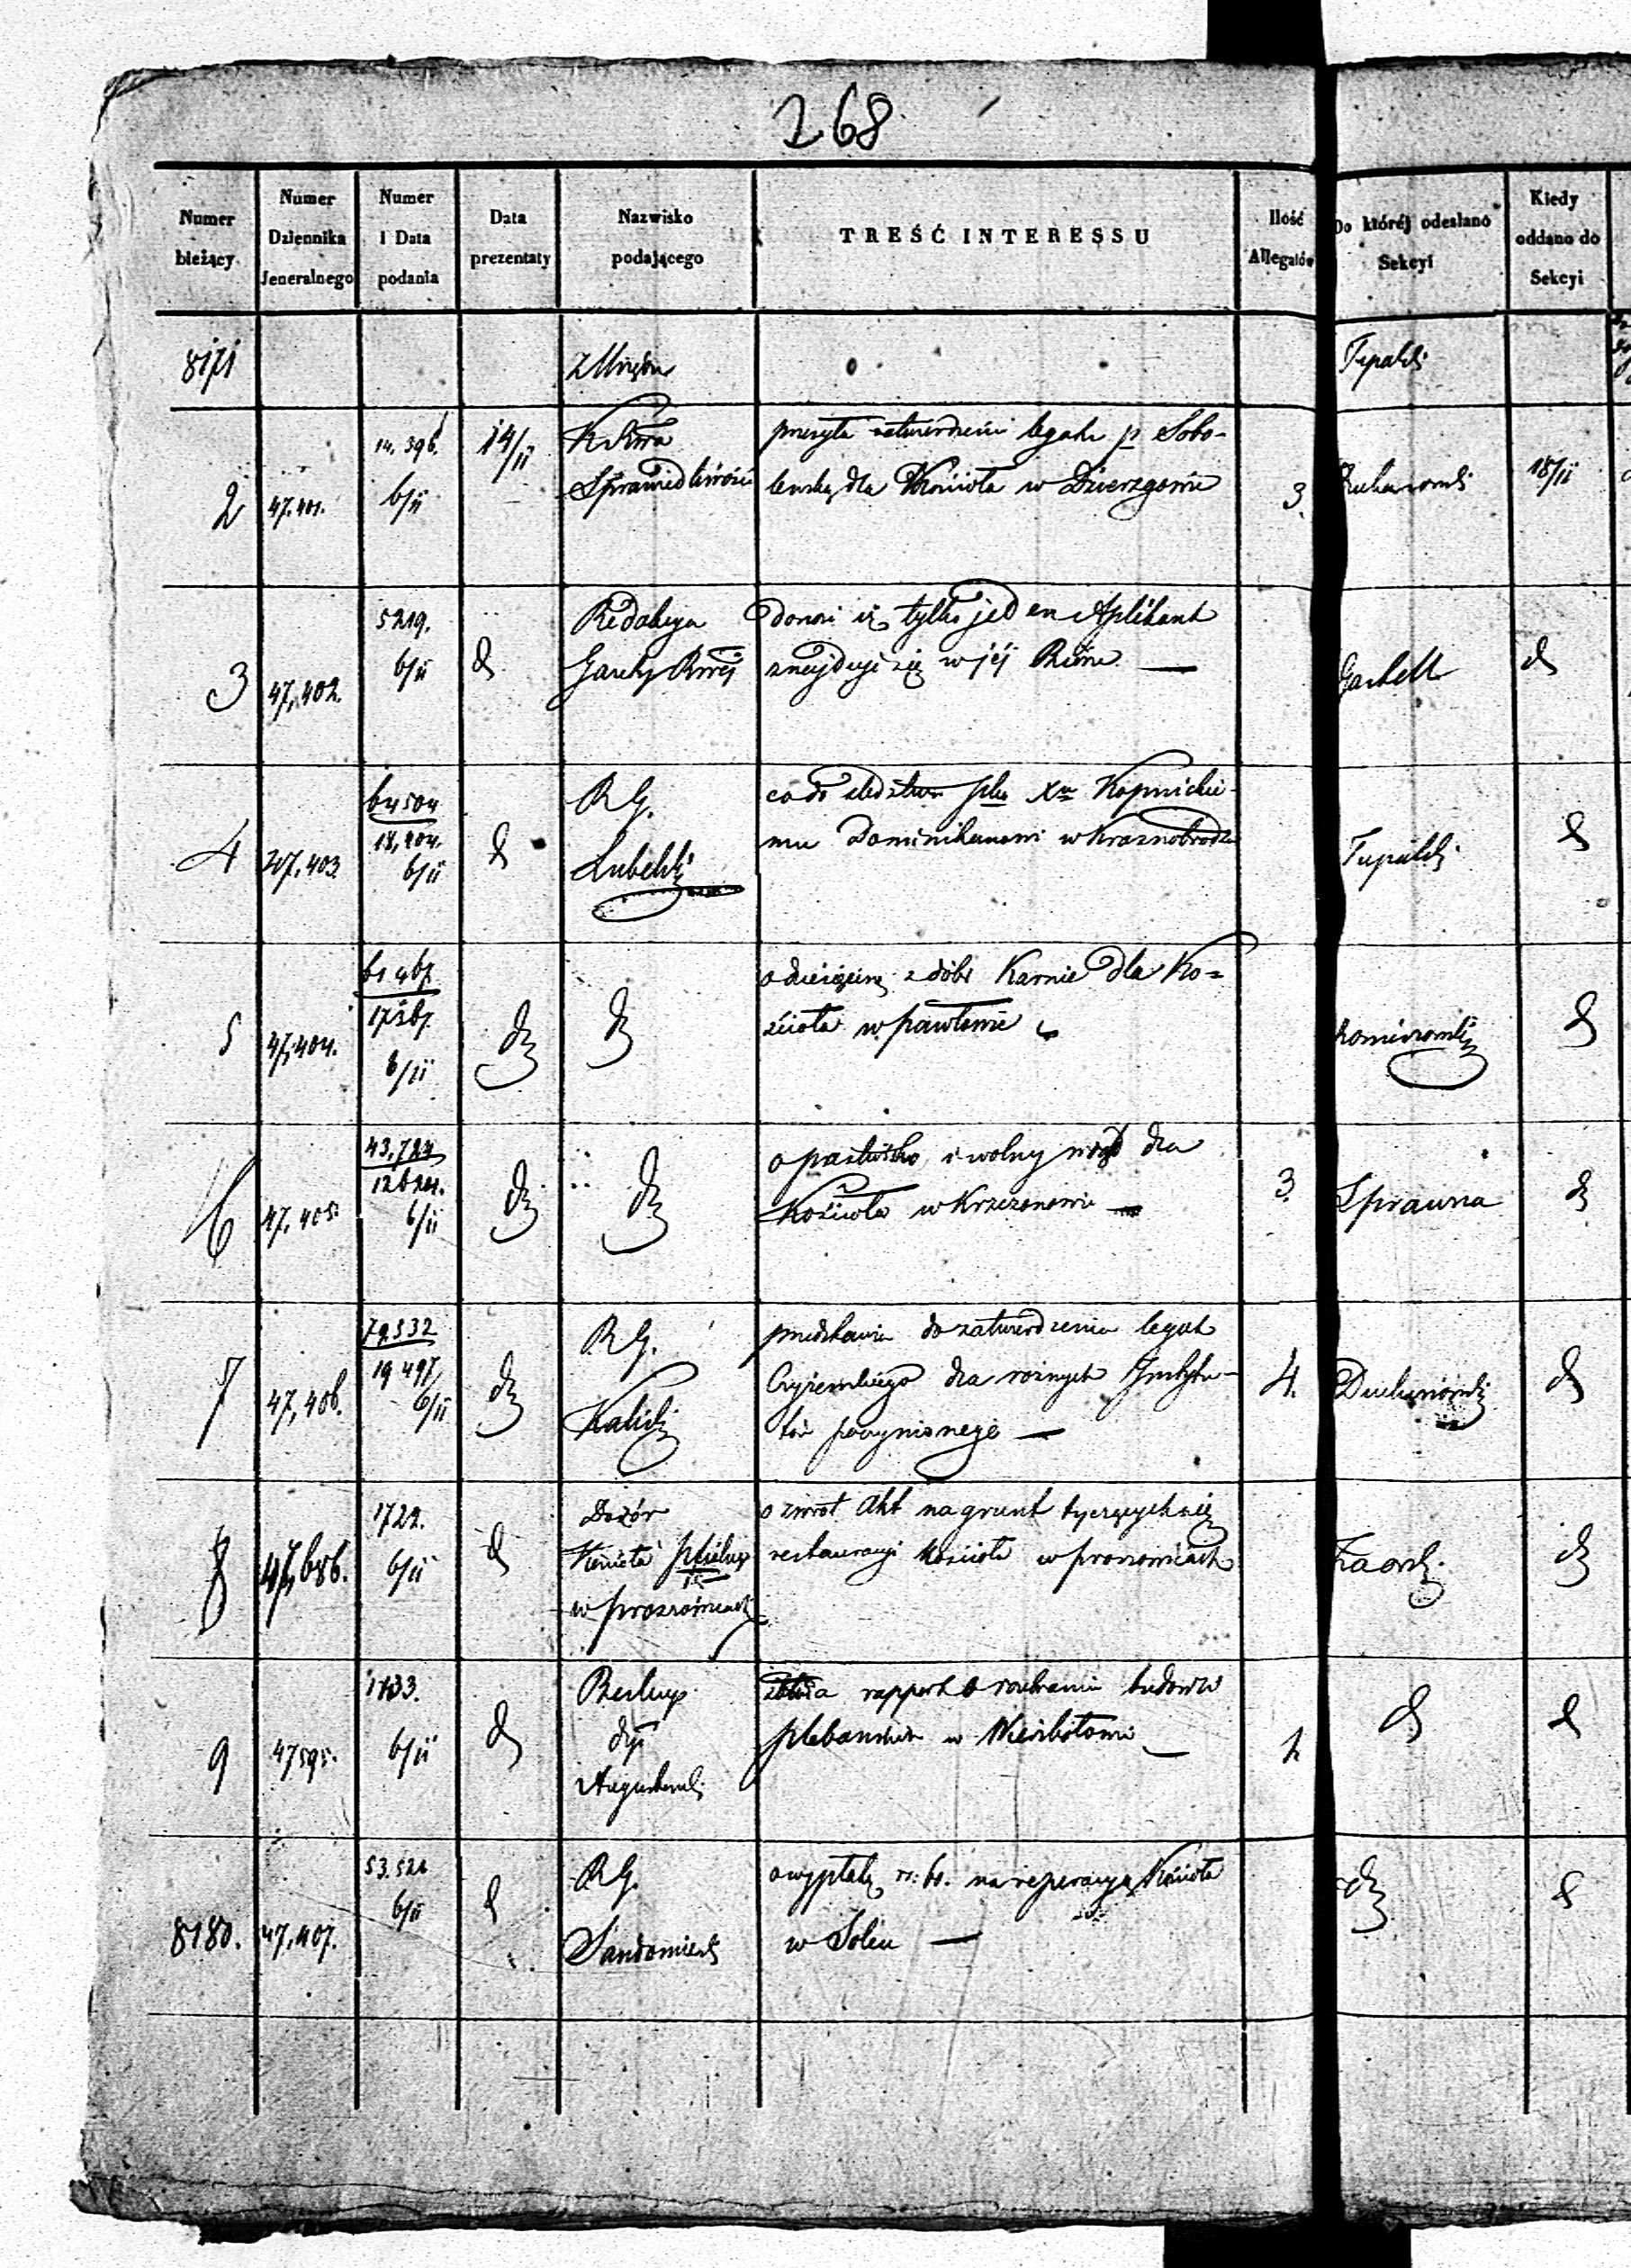 268
Numer bieżący
Numer Dziennika Jeneralnego
Numer i Data podania
Data prezentaty
Nazwisko podającego
TREŚĆ INTERESSU
Ilość Allegatów
Do któréj odesłano Sekcyi
Kiedy oddano do Sekcyi
8171
2 47.401. 14.396. 6/11 14/11
Sprawiedliwości
przesyła zatwierdzenie legatu p Sobo-
lewskiej dla Kościoła w Dzierzgowie
3. 18/11
3 47,402. 5219. 6/11 d
Redakcya
Gazety Rząwej
donosi iż tylko jeden Aplikant
znajduje się w jej Biórze —
d
4 47,403 64504 18,204. 6/11 d
RG.
Lubelski
co do śledztwa plko Xu Kopnickie-
mu Dominikanowi w Krasnobrodzie
Tupalski d
5 47,404. 61467 17567. 6/11 dz dz
o dziesięcinę z dóbr Karnie dla Ko-
ścioła w Pawłowie
d
6 47,405. 43,724 12624. 6/11 dz dz
o pastwisko i wolny wrąb dla
Kościoła w Krzczonowie —
3. Sprawna d
7 47,406. 79532 19497 6/11 dz
RG.
Kaliski
przedstawia do zatwierdzenia legat
dla rożnych Instytu-
tów poczynionego —
4. d
8 47,686. 1722. 6/11 d
Dozór
Kościoła
w Proszowicach
o zwrot Akt na grunt tyczących się
restauracyi Kościoła w Proszowicach
dz
9 47595. 1733. 6/11 d
Biskup
dyi
Augustowski
składa rapport o rozebraniu budowli
plebańskich w
1 d d
8180. 47,407. 53.521 6/11 d
RG.
Sandomierski
o wypłatę rs: 60. na reperacyą Kościoła
w Solcu —
dz d